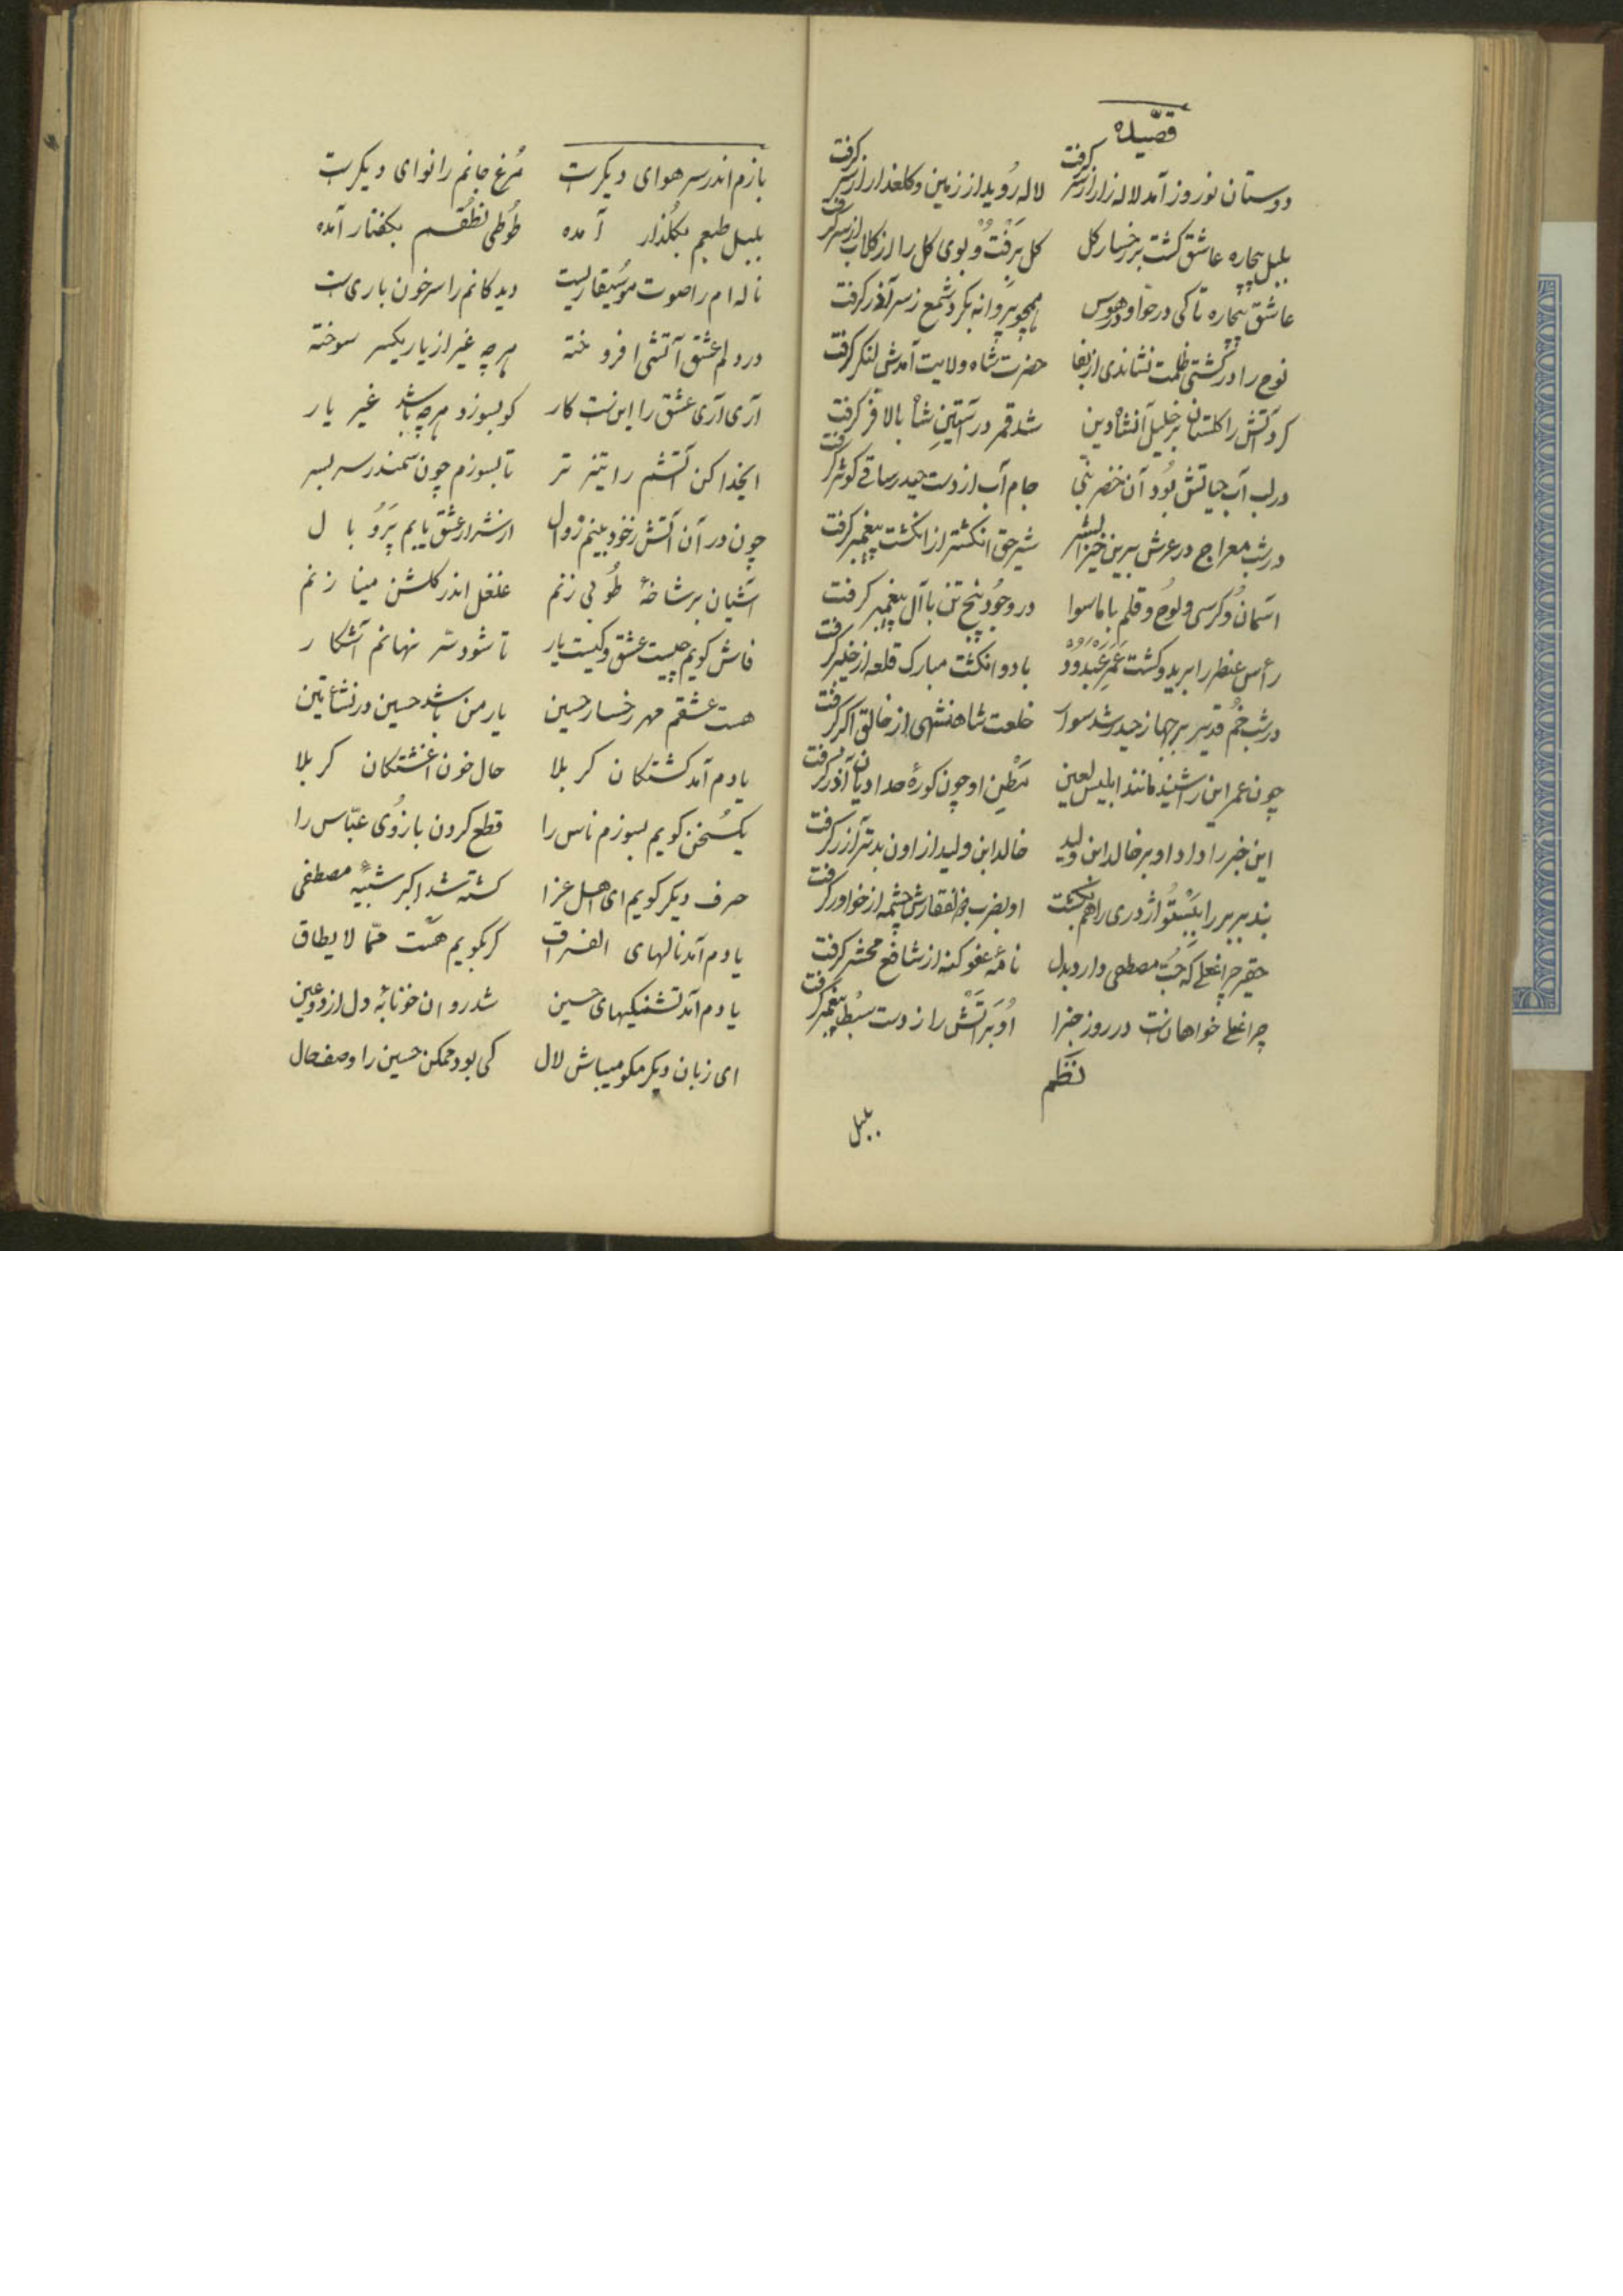 قصیده
دوستان نوروز آمد لاله زار از سر کرفت لاله رُوید از زمین و کلعذار از سر کرفت
بلبل بیچاره عاشق کشت بر خسار کل کل بَرَفتُ و بوی کل را از کلاب از سر کرفت
عاشق بیچاره تا کی در هوا و در هوس همچو پروانه بکرد شمع ز سر آذر کرفت
نوح را در کشتی ظلمت نشاندی از بقا حضرت شاه ولایت آمدش لنکر کرفت
کرد آتش را کلستان بر خلیل آنشاه دین شد قمر در آستین شا بالا فر کرفت
در لب آب حیاتش بُود آن خضر نبی جام آب از دست حیدر ساقی کوثر کرفت
در شب معراج در عرش برین خیر البشر شیر حق انکشتر از انکشت پیغمبر کرفت
آسمانُ و کرسی و لوح و قلم با ماسوا در وجُود پنج تن با آل پیغمبر کرفت
رأس عنطر را برید و کشت عَمرِ عَبدود با دو انکشت مبارک قلعه از خیبر کرفت
در شب خُم قدیر بر جهاز حیدر شد سوار خلعت شاهنشهی از خالق اکبر کرفت
چون عمر این را شنید مانند ابلیس لعین بَطن او چون کورهٔ حدادیان آذر کرفت
این خبر را داد او بر خالد ابن ولید خالد ابن ولید از اون بدتر آزر کرفت
بند بربر را ببَستُو اژدری را هم بکشت او بضرب ذوالفقارش چشمه از خواور کرفت
حقیر چراغعلی که حُبّ مصطفی دارد بدل نامهٔ عفو کنه از شافع محشر کرفت
چراغعلی خواهانت در روز جزا اُو بَر آتش را ز دست سبُط پیغمبر کرفت
نظم
بلبل
بازم اندر سر هوای دیکر ست مُرغ جانم را نوای دیکر ست
بلبل طبعم بکُلذار آمده طُوطی نطُقم بکفتار آمده
ناله ام را صوت موُسیقاریست دیدکانم را سر خون باری ست
در دلم عشق آتشی افروخته هر چه غیر از یار یکسر سوخته
آری آری عشق را این ست کار کو بسوزد هر چه باشد غیر یار
ایخدا کن آتشم را تیز تر تا بسوزم چون سمندر سر بسر
چون در آن آتش ز خود بینم زوال از شرار عشق یابم پَرُو بال
آشیان بر شاخهٔ طُوبی زنم غلغل اندر کلشن مینا زنم
فاش کویم چیست عشق و کیست یار تا شود سّر نهانم آشکار
هست عشقم مهر رخسار حسین یار من باشد حسین در نشأتین
یادم آمد کشتکان کربلا حال خون آغشتکان کربلا
یکسُخن کویم بسوزم ناس را قطع کردن بازُوی عبّاس را
حرف دیکر کویم ای اهل عزا کشته شد اکبر شبیهِ مصطفی
یادم آمد نالهای الفراق کر بکویم هست ممّا لا یطاق
یادم آمد تشنیکیهای حسین شد روان خونابهٔ دل از دو عین
ای زبان دیکر مکو میباش لال کی بود ممکن حسین را وصف حال